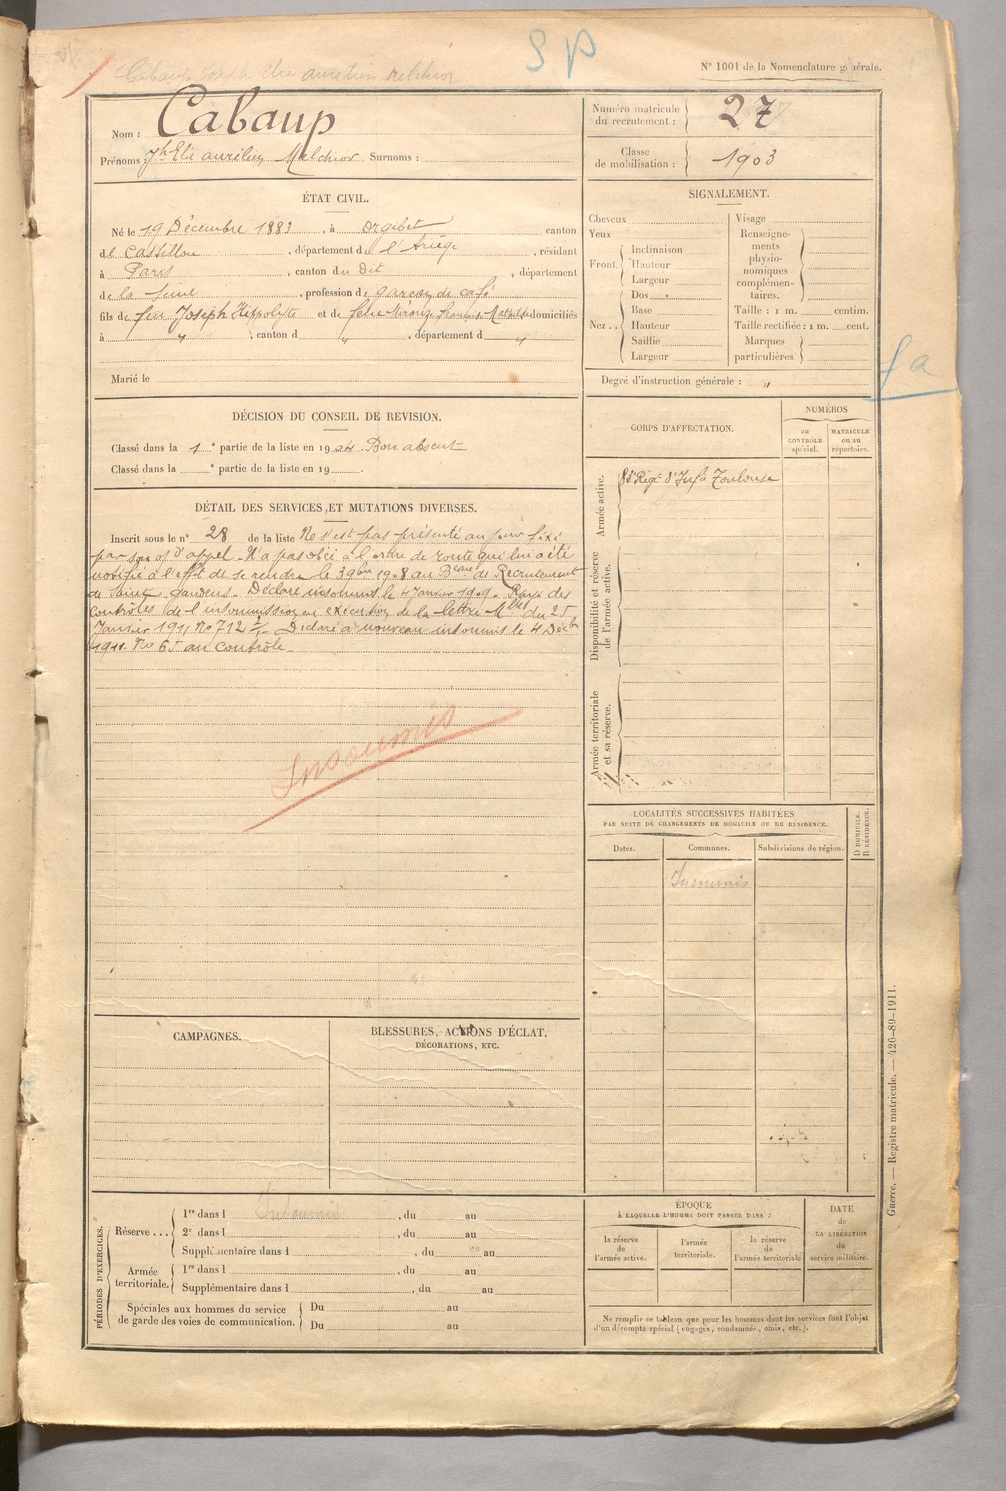 SP
Cabaup Joseph Elie aurélien melchior
N° 1001 de la Nomenclature générale.
Nom : Cabaup
Prénoms : Jh Elie aurélien Melchior Surnoms :
Numéro matricule du recrutement : 27
Classe de mobilisation : 1903
ÉTAT CIVIL.
Né le 19 Décembre 1883, à Orgibet canton
de Castillon, département de l'Ariège, résidant
à Paris, canton du Dit, département
de la Seine, profession de garçon de café
fils de feu Joseph Hippolyte et de domiciliés
à " , canton d " , département d "
Marié le
SIGNALEMENT.
Cheveux
Yeux
Front. Inclinaison
Hauteur
Largeur
Nez.. Dos..
Base
Hauteur
Saillie
Largeur
Visage
Renseignements physionomiques complémentaires.
Taille : 1 m. centim.
Taille rectifiée : 1 m. cent.
Marques particulières.
Degré d'instruction générale : "
DÉCISION DU CONSEIL DE REVISION.
Classé dans la 1e partie de la liste en 1904 Bon absent
Classé dans la e partie de la liste en 19 .
CORPS D'AFFECTATION.
NUMÉROS
au CONTRÔLE spécial.
MATRICULE ou au répertoire.
Armée active.
83e Régt d'Infie Toulouse
Disponibilité et réserve de l'armée active.
Armée territoriale et sa réserve.
DÉTAIL DES SERVICES ET MUTATIONS DIVERSES.
Inscrit sous le n° 28 de la liste Ne s'est pas présenté au jour fixé
par son d'appel. N'a pas obéi à l'ordre de route qui lui a été
notifié à l'effet de se rendre le 3 9bre 1908 au Beau de Recrutement
de Saint-Gaudens. Déclaré insoumis le 4 Janvier 1909. Rayé des
contrôles de l'insoumission en exécution de la lettre Mlle du 25
Janvier 1911 No 712 2/1. Déclaré à nouveau insoumis le 4 Décbre
1911. No 65 au contrôle.
Insoumis
LOCALITÉS SUCCESSIVES HABITÉES
PAR SUITE DE CHANGEMENTS DE DOMICILE OU DE RÉSIDENCE.
Dates.
Communes.
Subdivisions de région.
D DOMICILE.
R RÉSIDENCE.
Insoumis
CAMPAGNES.
BLESSURES, ACTIONS D'ÉCLAT,
DÉCORATIONS, ETC.
PÉRIODES D'EXERCICES.
Réserve... 1re dans l Insoumis , du au
2e dans l , du au
Supplémentaire dans l , du au
Armée territoriale. 1re dans l , du au
Supplémentaire dans l , du au
Spéciales aux hommes du service de garde des voies de communication. Du au
Du au
ÉPOQUE
À LAQUELLE L'HOMME DOIT PASSER DANS :
la réserve de l'armée active.
l'armée territoriale.
la réserve de l'armée territoriale
DATE
de
LA LIBÉRATION
du
service militaire.
Ne remplir ce tableau que pour les hommes dont les services font l'objet
d'un décompte spécial (engagés, condamnés, omis, etc.).
Guerre. — Registre matricule. — 426-89-1911.